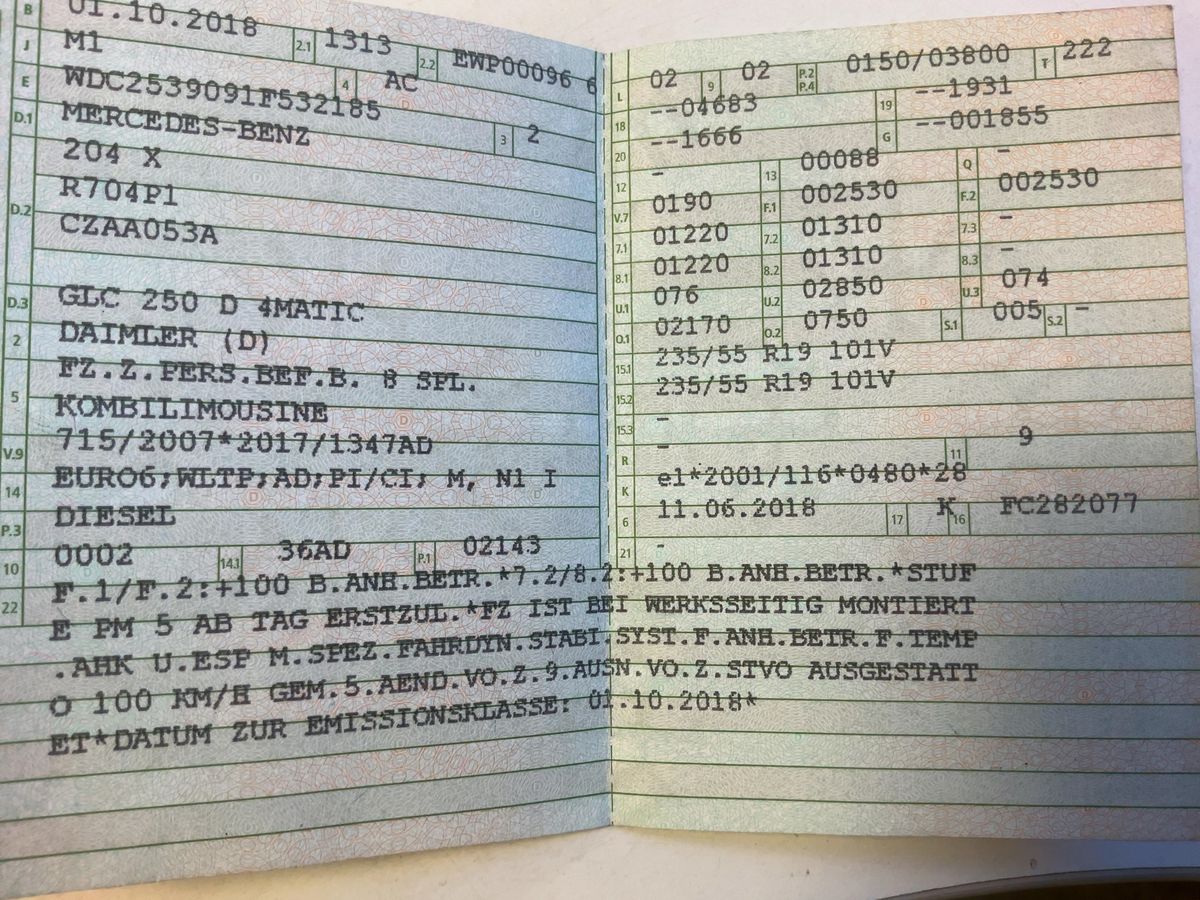 B 01.10.2018 2.1 1313 2.2 EWP00096 6
J M1 4 AC
E WDC2539091F532185
D.1 MERCEDES-BENZ 3 2
D.2 204 X
R704P1
CZAA053A
D.3 GLC 250 D 4MATIC
2 DAIMLER (D)
5 FZ.Z.PERS.BEF.B. 8 SPL.
KOMBILIMOUSINE
V.9 715/2007*2017/1347AD
14 EURO6;WLTP;AD;PI/CI; M, N1 I
P.3 DIESEL
10 0002 14.1 36AD P.1 02143
L 02 9 02 P.2 P.4 0150/03800 T 222
18 --04683 19 --1931
20 --1666 G --001855
12 - 13 00088 Q -
V.7 0190 F.1 002530 F.2 002530
7.1 01220 7.2 01310 7.3 -
8.1 01220 8.2 01310 8.3 -
U.1 076 U.2 02850 U.3 074
O.1 02170 O.2 0750 S.1 005 S.2 -
15.1 235/55 R19 101V
15.2 235/55 R19 101V
15.3 -
R - 11 9
K e1*2001/116*0480*28
6 11.06.2018 17 K 16 FC282077
21 -
22 F.1/F.2:+100 B.ANH.BETR.*7.2/8.2:+100 B.ANH.BETR.*STUF
E PM 5 AB TAG ERSTZUL.*FZ IST BEI WERKSSEITIG MONTIERT
.AHK U.ESP M.SPEZ.FAHRDYN.STABI.SYST.F.ANH.BETR.F.TEMP
O 100 KM/H GEM.5.AEND.VO.Z.9.AUSN.VO.Z.STVO AUSGESTATT
ET*DATUM ZUR EMISSIONSKLASSE: 01.10.2018*